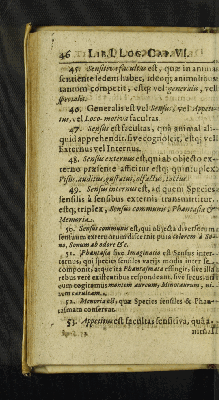 46 LIB. I. LOG. CAP. VI.
45. Sensitiva facultas est, quæ in anima
sentiente sedem habet, ideoq; animalium
tantum competit, estq; vel generalis, vel
specialis.
46. Generalis est vel Sensus, vel Appeti-
tus, vel Loco-motiva facultas.
47. Sensus est facultas, qua animal ali-
quid apprehendit & cognoscit, estq; vel
Externus vel Internus.
48. Sensus externus est, qui ab objecto ex-
terno præsente afficitur estq; quintuplex
Visus, auditus, gustatus, olfactus, tactus.
49. Sensus internus est, ad quem Species
sensilis à sensibus externis transmittitur,
estq; triplex, Sensus communis, Phantasia &
Memoria.
50. Sensus communis est, qui objecta diversorum
sensuum externorum discernit puta colorem à So-
no, Sonum ab odore &c.
51. Phantasia sive Imaginatio est Sensus inter-
nus, qui species sensiles variis modis inter se
componit, atque ita Phantasmata effingit, sive illa
rebus verè existentibus respondeant, sive secus, ut
cum cogitamus montem aureum, Minotaurum,
52. Memoria est, quæ Species sensiles & Phan-
tasmata conservat.
53. Appetitus est facultas sensitiva, qua a-